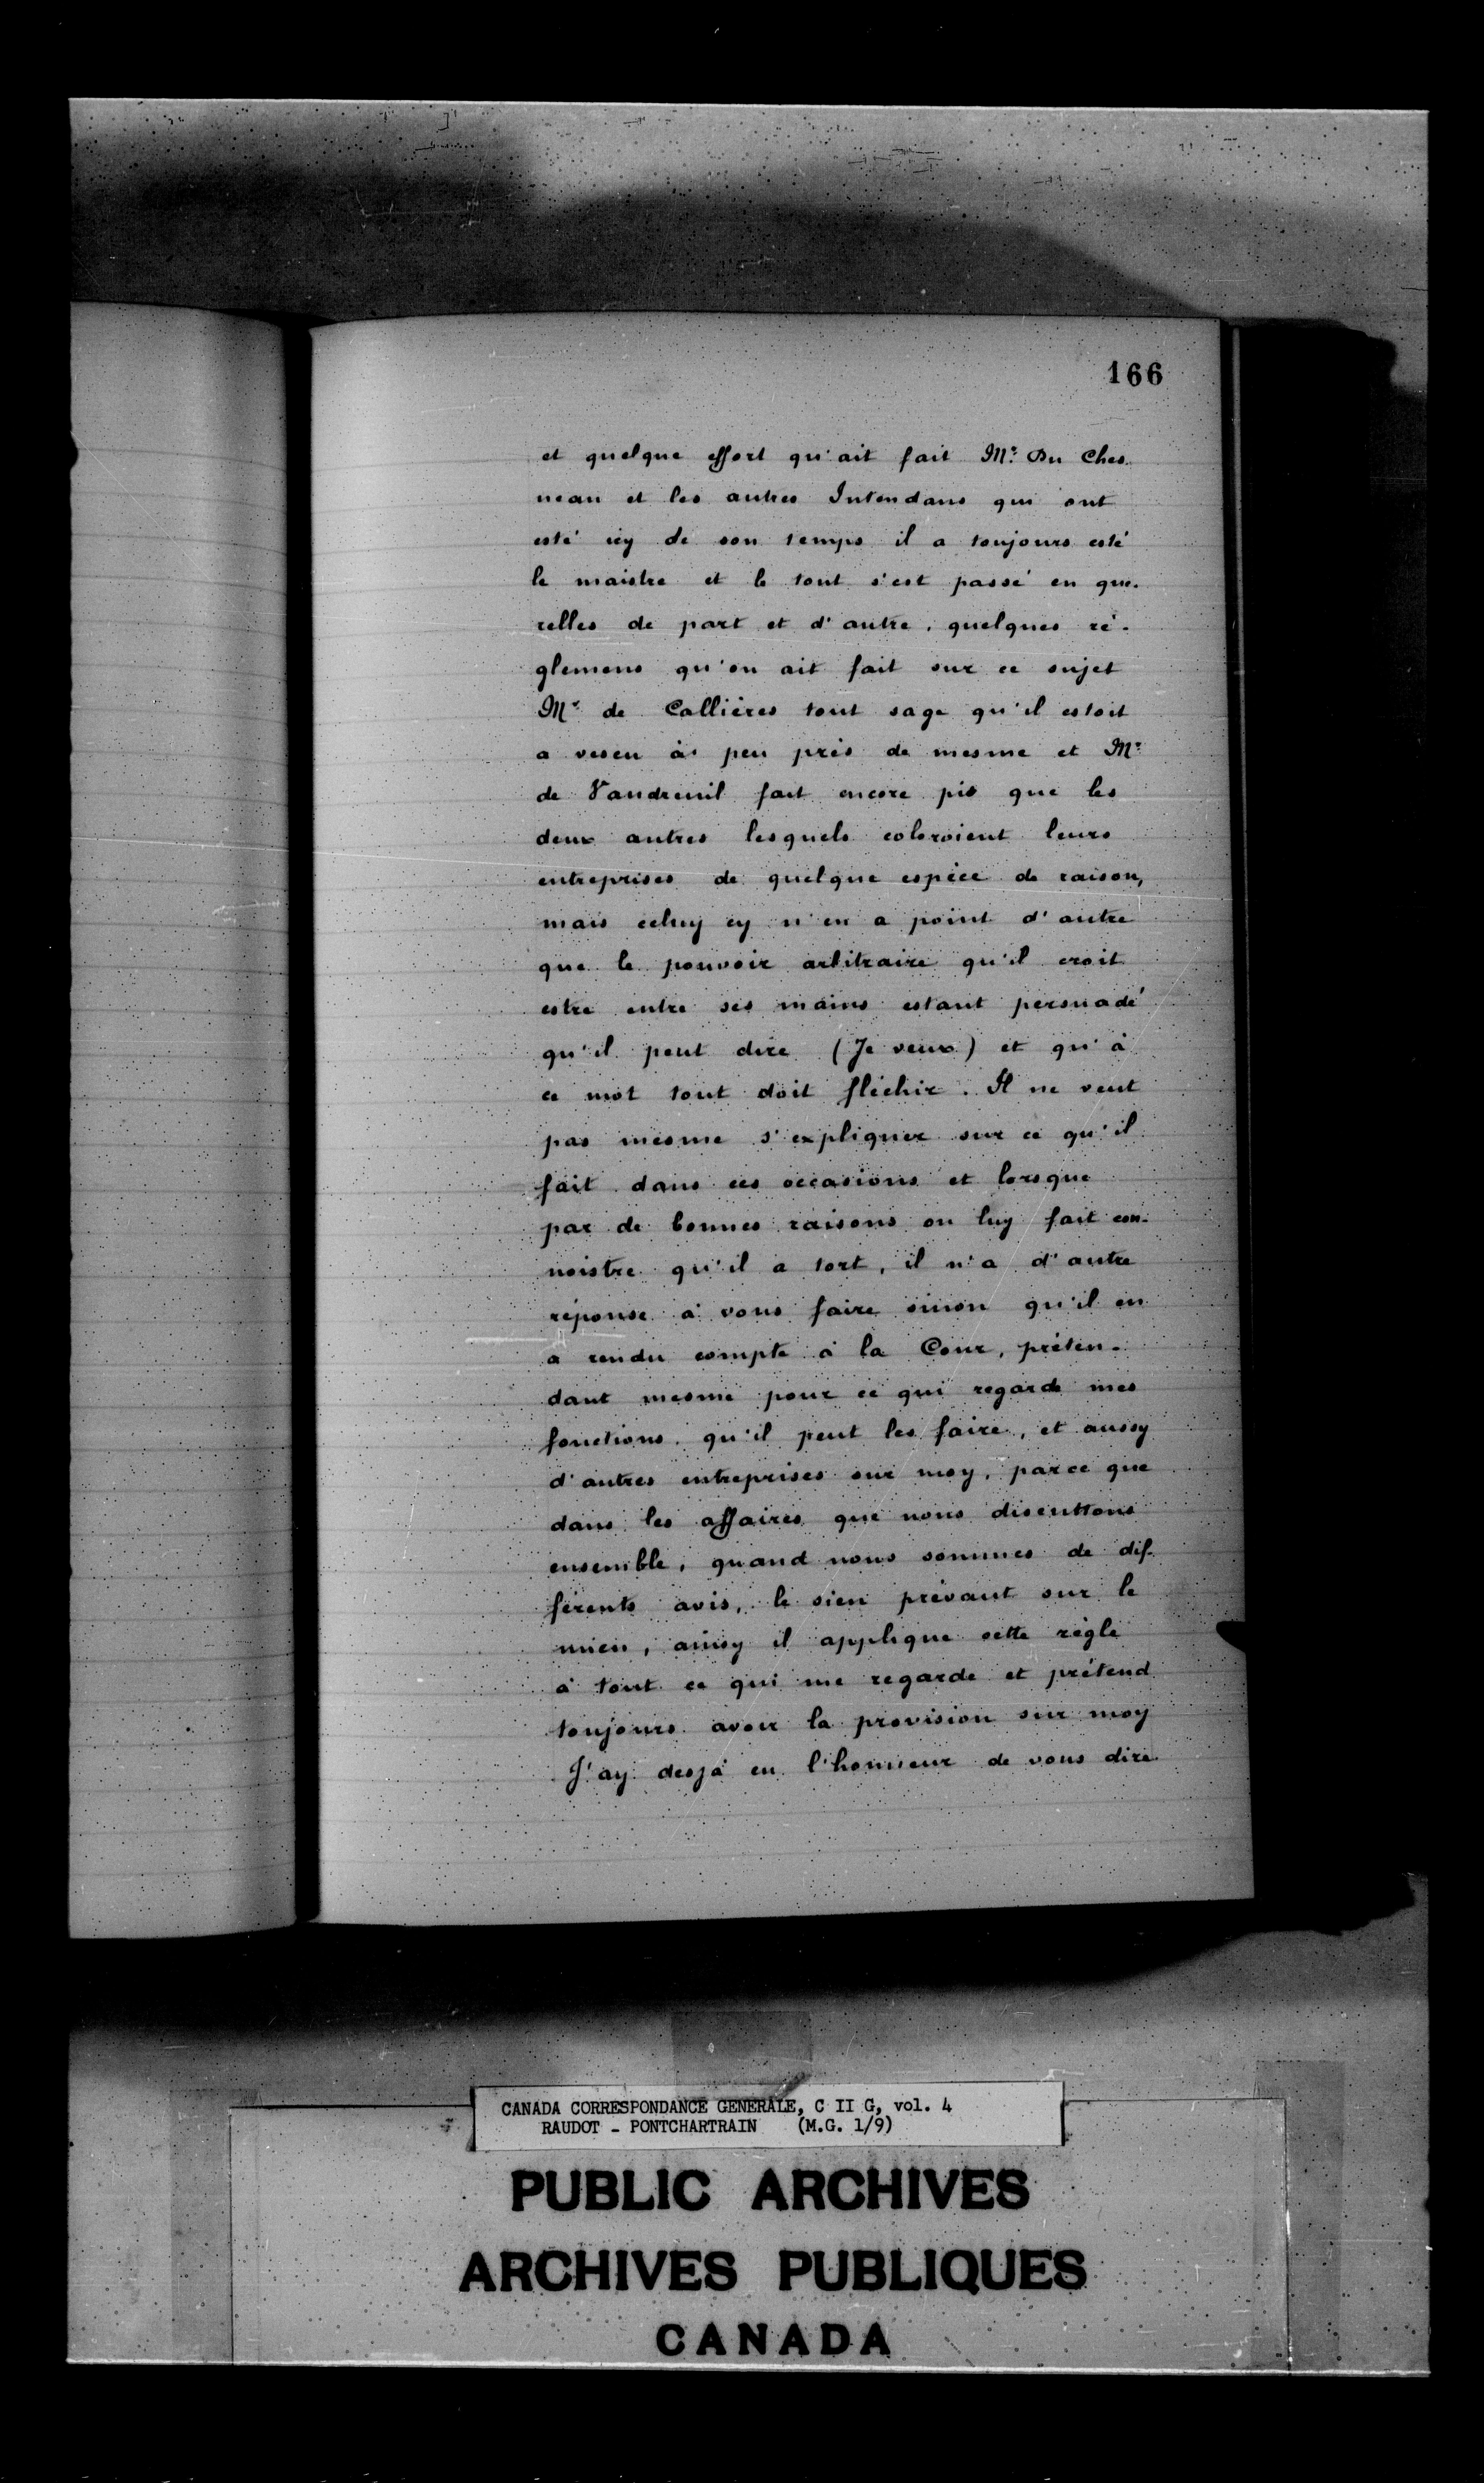 166
et quelque effort qu'ait fait Mr. Du Ches-
neau et les autres Intendans qui ont
esté icy de son temps il a toujours esté
le maistre et le tout s'est passé en que-
relles de part et d'autre, quelques ré-
glemens qu'on ait fait sur ce sujet
Mr. de Callières tout sage qu'il estoit
a vescu à peu près de mesme et Mr.
de Vaudreuil fait encore pis que les
deux autres lesquels coloroient leurs
entreprises de quelque espèce de raison,
mais celuy cy n'en a point d'autre
que le pouvoir arbitraire qu'il croit
estre entre ses mains estant persuadé
qu'il peut dire (Je veux) et qu'à
ce mot tout doit fléchir. Il ne veut
pas mesme s'expliquer sur ce qu'il
fait dans ces occasions et lorsque
par de bonnes raisons on luy fait con-
noistre qu'il a tort, il n'a d'autre
réponse à vous faire sinon qu'il en
a rendu compte à la Cour, préten-
dant mesme pour ce qui regarde mes
fonctions qu'il peut les faire, et aussy
d'autres entreprises sur moy, parce que
dans les affaires que nous discuttons
ensemble, quand nous sommes de dif-
férents avis, le sien prévaut sur le
mien, ainsy il applique cette règle
à tout ce qui me regarde et prétend
toujours avoir la provision sur moy
J'ay desjà eu l'honneur de vous dire
CANADA CORRESPONDANCE GENERALE, C II G, vol. 4
RAUDOT - PONTCHARTRAIN (M.G. 1/9)
PUBLIC ARCHIVES
ARCHIVES PUBLIQUES
CANADA